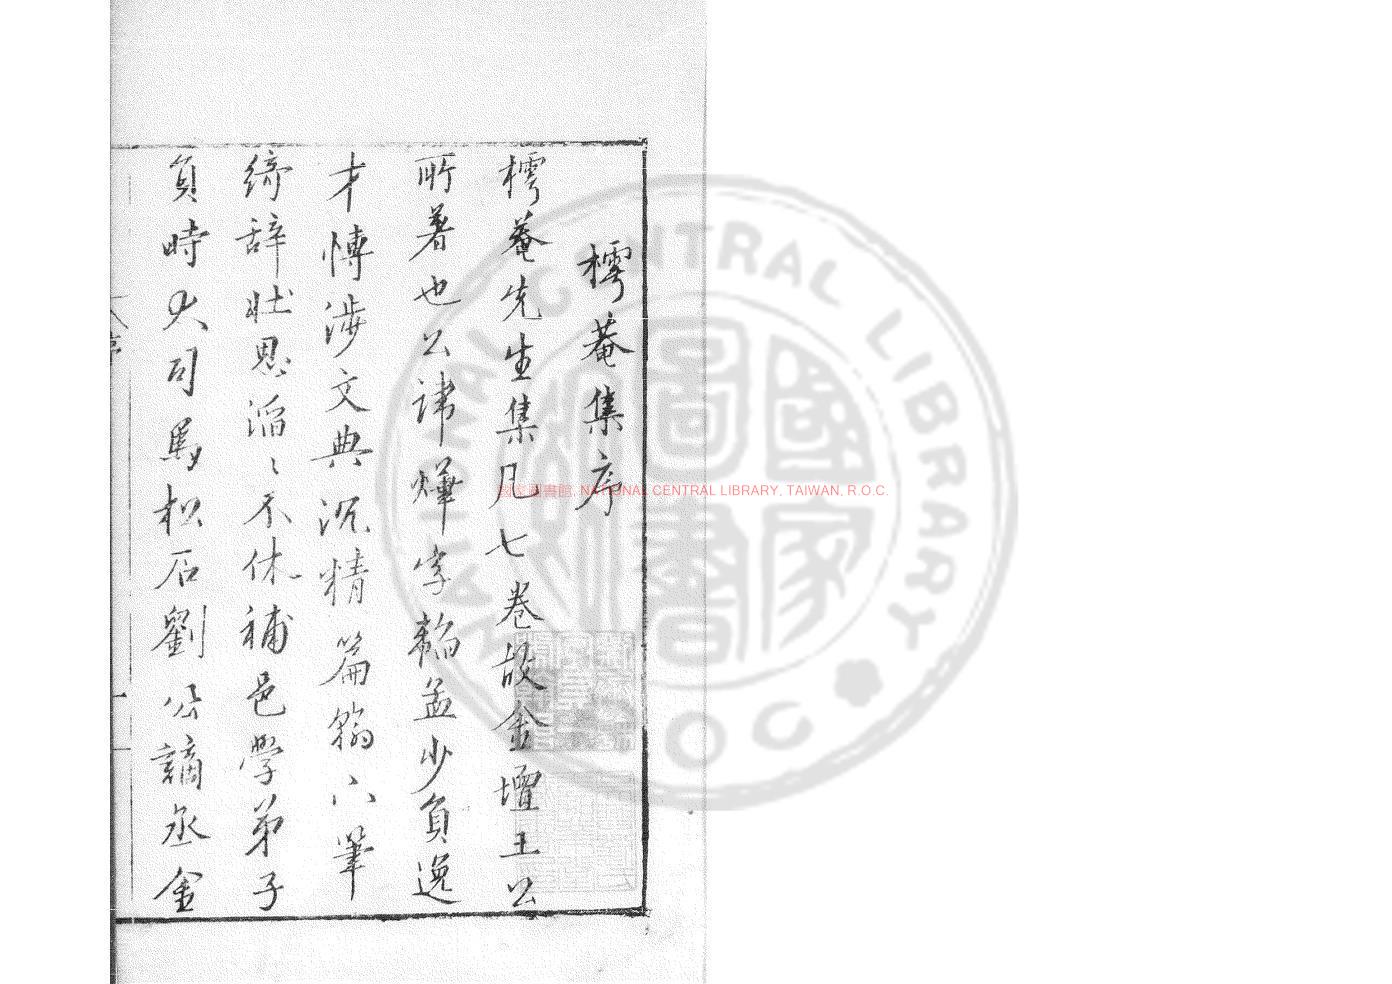 樗菴集序
樗菴先生集凡七卷故金壇王公
所著也公諱燁字韜孟少負逸
才慱涉文典沉精篇翰八筆
締辭壯思滔〻不休補邑學弟子
員時大司馬松石劉公謫丞金
NATIONAL CENTRAL LIBRARY
R O C
國家圖書館
國家圖書館, NATIONAL CENTRAL LIBRARY, TAIWAN, R.O.C.